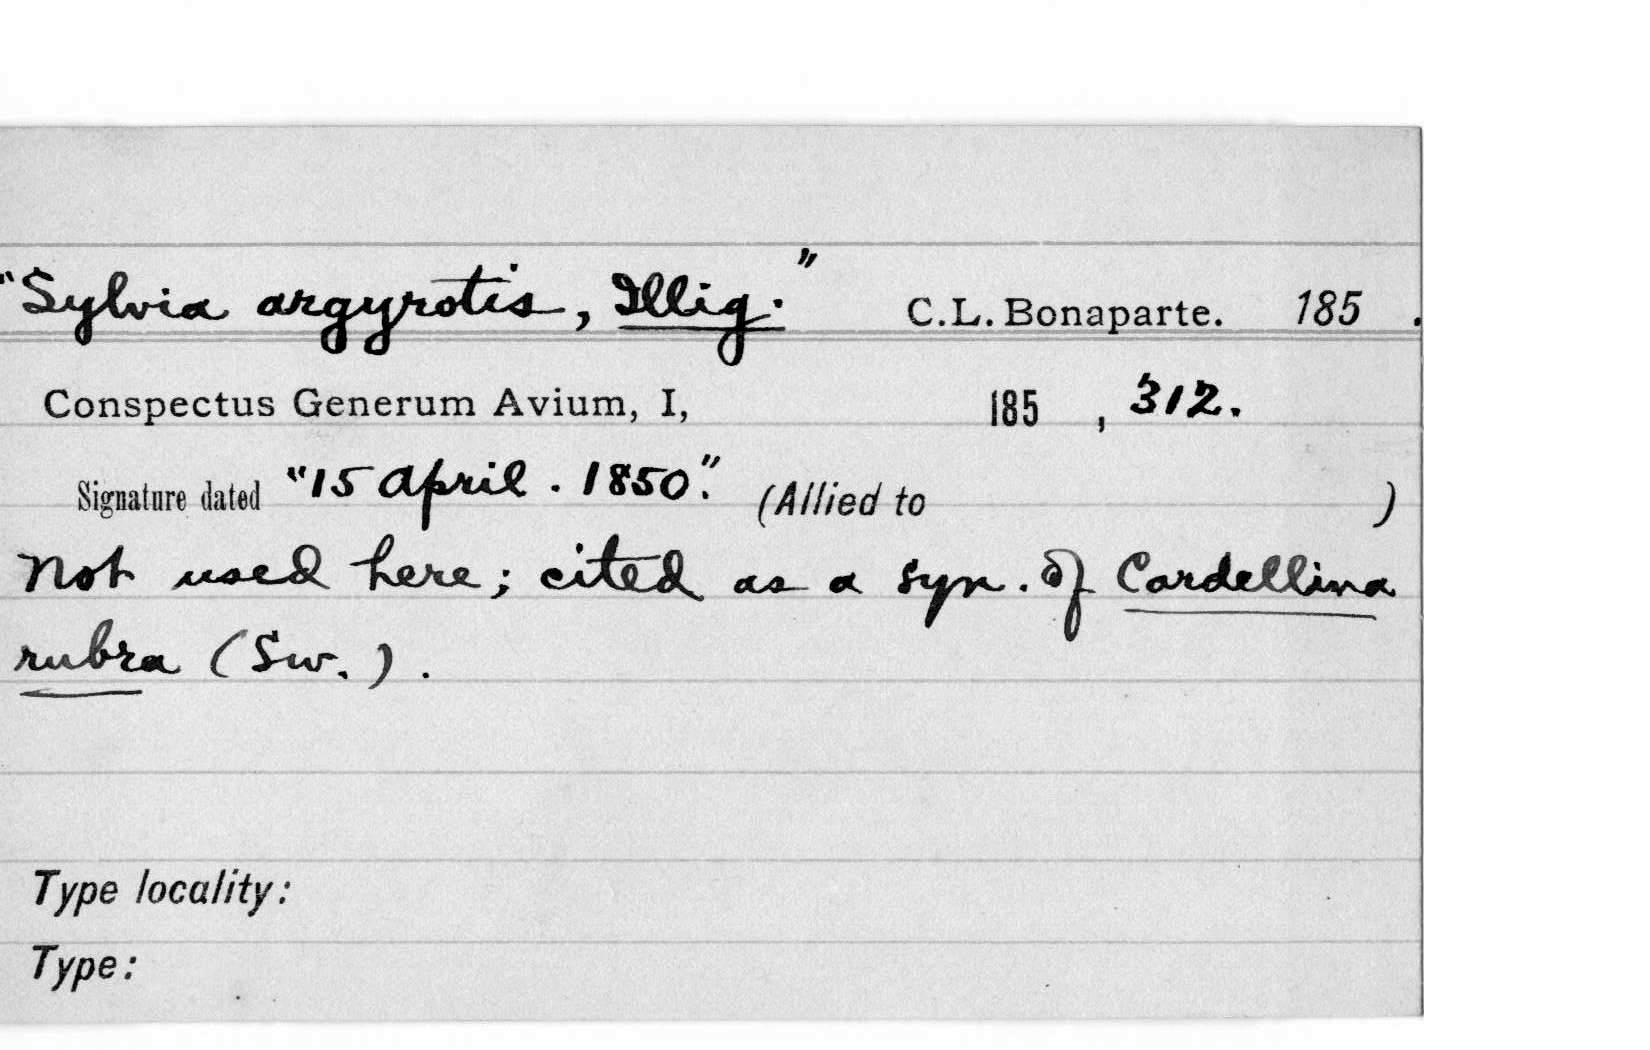 "Sylvia argyrotis, Illig." C.L. Bonaparte. 185 .
Conspectus Generum Avium, I, 185 , 312.
Signature dated "15 April . 1850". (Allied to )
Not used here; cited as a syn. of Cardellina
rubra (Sw.) .
Type locality:
Type: